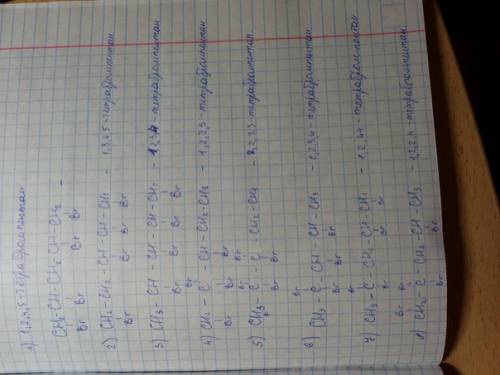 1) 1,2,4,5-тетрабромпентан
CH2-CH-CH2-CH-CH2 -
Br Br Br Br
2) CH2-CH2-CH-CH-CH2 - 1,3,4,5-тетрабромпентан
Br Br Br Br
3) CH3-CH-CH-CH-CH2 - 1,2,3,4-тетрабромпентан
Br Br Br Br
4) CH2-C-CH-CH2-CH3 - 1,2,2,3-тетрабромпентан
Br Br Br
5) CH3-C-C-CH2-CH3 - 2,2,3,3-тетрабромпентан
Br Br
6) CH3-C-CH-CH-CH3 - 2,2,3,4-тетрабромпентан
Br Br Br
7) CH3-C-CH-CH-CH2 - 1,2,4,4-тетрабромпентан
Br Br Br
8) CH2-C-CH2-CH-CH3 - 1,2,2,4-тетрабромпентан
Br Br Br